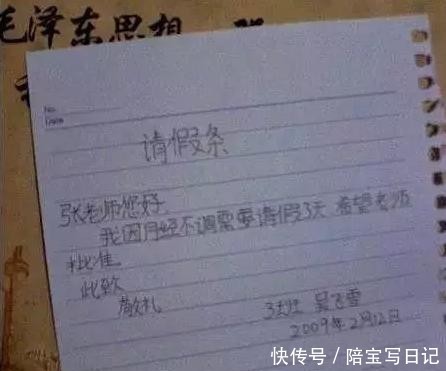 毛泽东思想
No.
Date
请假条
张老师您好
我因月经不调需要请假3天 希望老师
批准
此致
敬礼
3班 吴飞雪
2009年2月12日
快传号 / 陪宝写日记